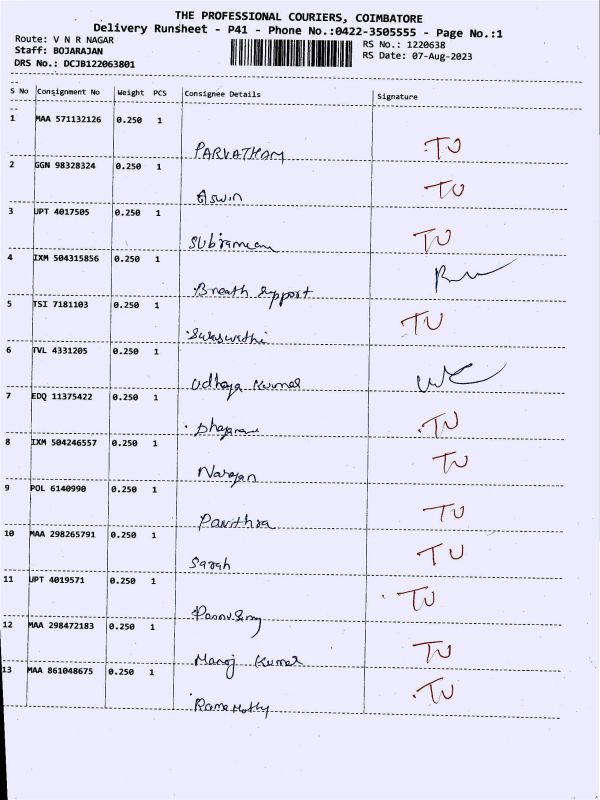 THE PROFESSIONAL COURIERS, COIMBATORE
Delivery Runsheet - P41 - Phone No.:0422-3505555 - Page No.:1
Route: V N R NAGAR
Staff: BOJARAJAN
DRS No.: DCJB122063801
RS No.: 1220638
RS Date: 07-Aug-2023
S No Consignment No Weight PCS Consignee Details Signature
1 MAA 571132126 0.250 1
PARVATHAM TU
2 GGN 98328324 0.250 1
Aswin TU
3 UPT 4017505 0.250 1
TU
4 IXM 504315856 0.250 1
Breath Support
5 TSI 7181103 0.250 1
TU
6 TVL 4331205 0.250 1
Udhaya Kumar
7 EDQ 11375422 0.250 1
TU
8 IXM 504246557 0.250 1
Narayan TU
9 POL 6140990 0.250 1
Pavithra TU
10 MAA 298265791 0.250 1
Sarah TU
11 UPT 4019571 0.250 1
TU
12 MAA 298472183 0.250 1
Manoj Kumar TU
13 MAA 861048675 0.250 1
TU